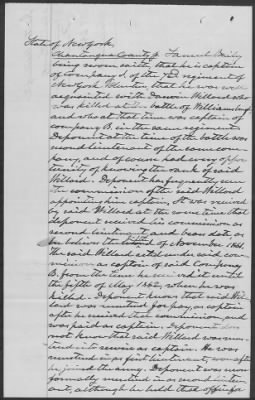 State of New York
Chautauqua County Samuel Bailey
being sworn saith, that he is captain
of company of the 72d regiment of
New York Volunteers, that he was well
acquainted with Darwin Willard who
was killed at the battle of Williamsburg
and who at that time was captain of
company B. in the same regiment
Deponent at the time of the battle was
second lieutenant of the same com-
pany, and of course had every oppor
tunity of knowing the rank of said
Willard. Deponent has frequently seen
the commission of the said Willard
appointing him captain, It was received
by said Willard at the same time that
deponent received his commission as
second lieutenant, and bear date as
he believes the of November 1861.
The said Willard acted under said com-
mission as captain of said Company
B. from the time he received it until
the fifth of May 1862, when he was
killed. Deponent knows that said Wil-
lard was mustered for pay, as captain
after he received that commission, and
was paid as captain. Deponent does
not know that said Willard was mus-
tered into service as captain. He was
mustered in as first lieutenant, soon after
he joined the army. Deponent was never
formally mustered in as second lieuten
ant, although he held that office for